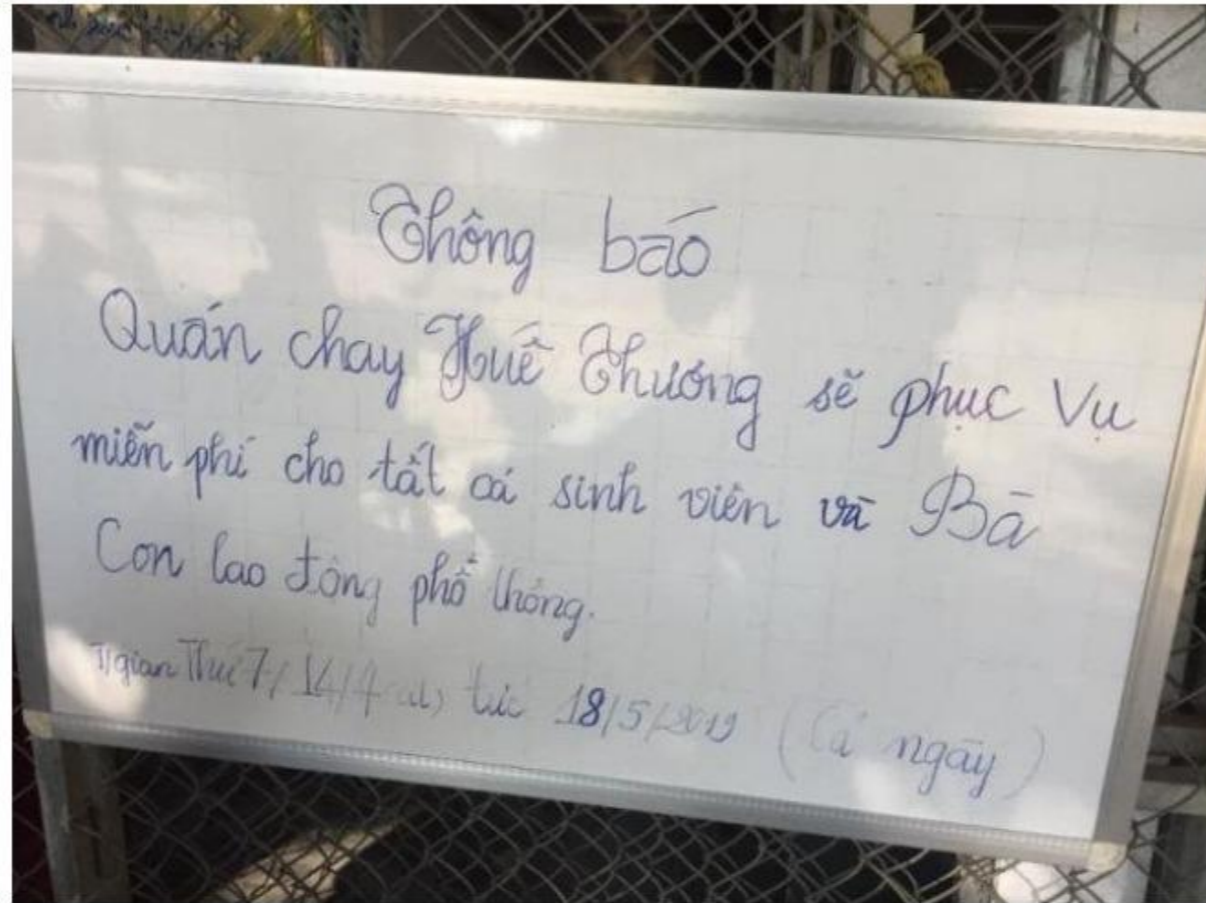 Thông báo
Quán chay Huế Thương sẽ phục vụ
miễn phí cho tất cả sinh viên và Bà
Con lao động phổ thông.
T/gian Thứ 7/ 14/4 al, tức 18/5/2019 (Cả ngày)